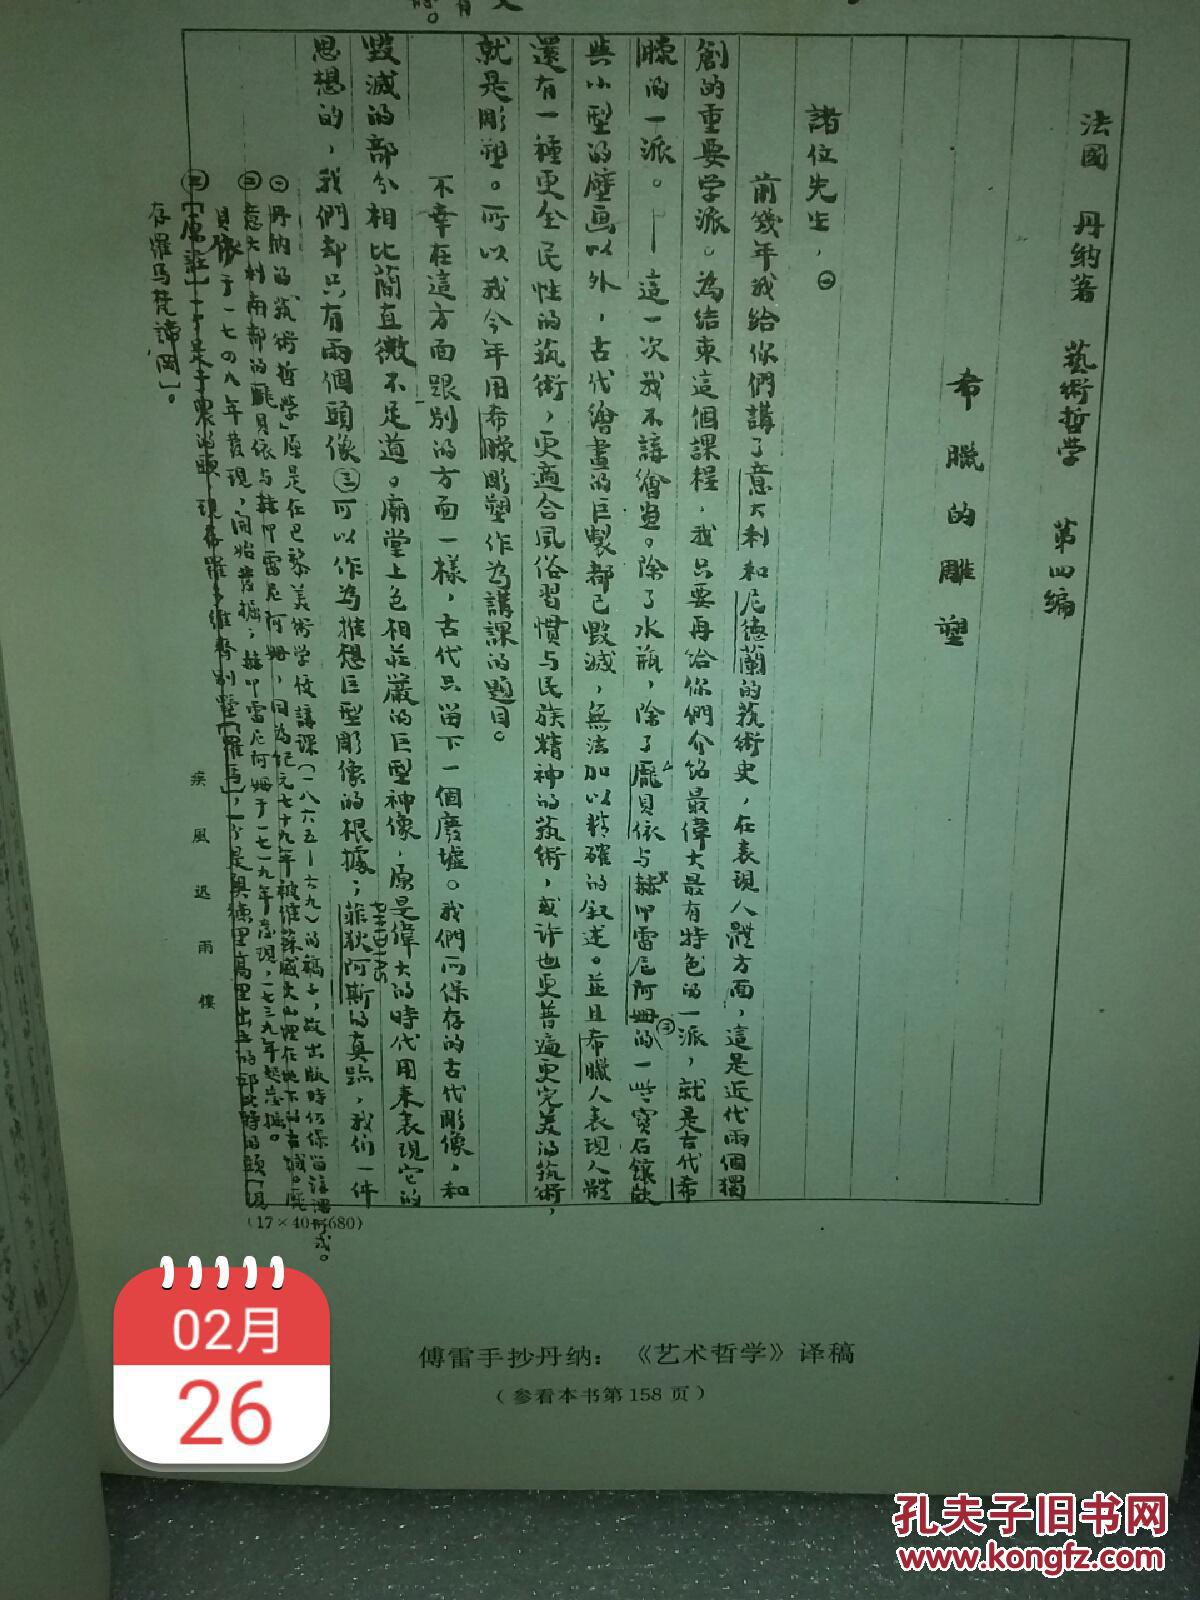 法國 丹納著 藝術哲学 第四编
希臘的雕塑
諸位先生，㊀
前幾年我給你們講了意大利和尼德蘭的藝術史，在表現人體方面，這是近代兩個獨
創的重要学派。為結束這個課程，我只要再給你們介紹最偉大最有特色的一派，就是古代希
臘的一派。——這一次我不講繪畫。除了水瓶，除了龐貝依与赫叩雷尼阿姆的㊁一些寶石鑲嵌
與小型的壁画以外，古代繪畫的巨製都已毀滅，無法加以精確的叙述。並且希臘人表現人體
還有一種更全民性的藝術，更適合風俗習慣与民族精神的藝術，或许也更普遍更完美的藝術，
就是彫塑。所以我今年用希臘彫塑作為講課的題目。
不幸在這方面跟别的方面一樣，古代只留下一個廢墟。我們所保存的古代彫像，和
毀滅的部分相比簡直微不足道。廟堂上色相莊嚴的巨型神像，原是偉大的時代用来表現它的
思想的，我們却只有兩個頭像㊂可以作為推想巨型彫像的根據；菲狄阿斯的真跡，我们一件
㊀丹納的「藝術哲学」原是在巴黎美術学校講課（一八六五—六九）的稿子，故出版時仍保留講演形式。
㊁意大利南部的龐貝依与赫叩雷尼阿姆，同為紀元七十九年被維蘇威火山埋在地下的古城。龐
貝依于一七四八年發現，開始發掘；赫叩雷尼阿姆于一七一九年發現，一七三九年起發掘。
㊂[原註]一个是于農的頭，現存羅多維齊别墅[羅馬]，一个是奥德里高里出土的邱比特的頭[現
存羅馬梵諦岡]。
疾風迅雨樓
(17×40=680)
傅雷手抄丹纳：《艺术哲学》译稿
（参看本书第158页）
02月
26
孔夫子旧书网
www.kongfz.com